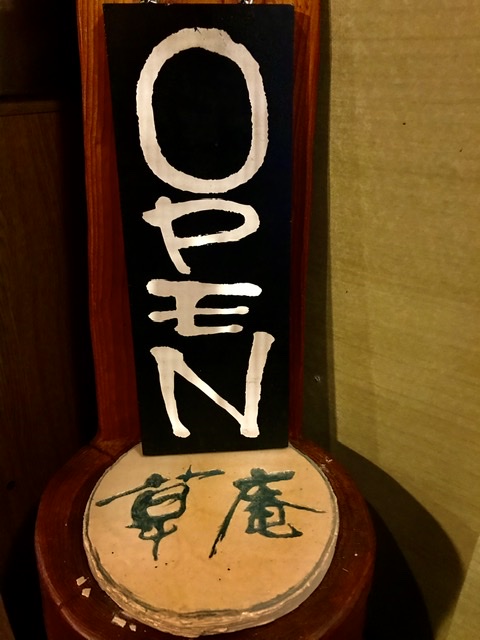 OPEN
草庵